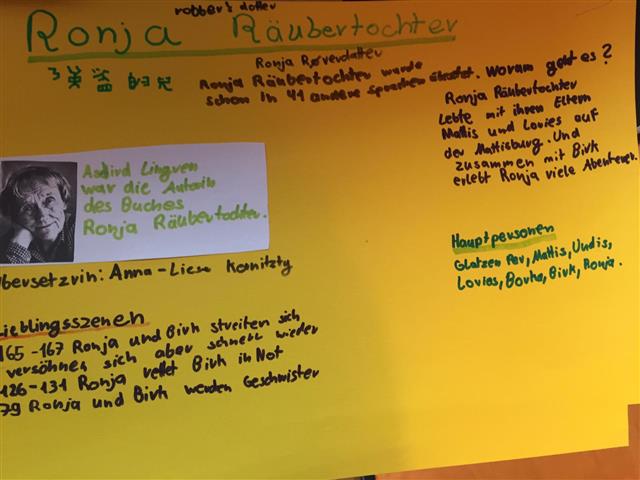 robber's dotter
Ronja Räubertochter
Ronja Røverdatter
Ronja Räubertochter wurde
schon in 41 andere sprachen übersetzt.
Worum geht es?
Ronja Räubertochter
Lebte mit ihren Eltern
Mattis und Lovies auf
der Mattisburg. Und
zusammen mit Birk
erlebt Ronja viele Abenteuer.
Astrid Lingren
war die Autorin
des Buches
Ronja Räubertochter.
Übersetzrin: Anna-Liese Kornitzky
Hauptpersonen
Glatzen Per, Mattis, Undis,
Lovies, Borka, Birk, Ronja.
Lieblingsszenen
165-167 Ronja und Birk streiten sich
versöhnen sich aber schnell wieder
126-131 Ronja rettet Birk in Not
79 Ronja und Birk werden Geschwister